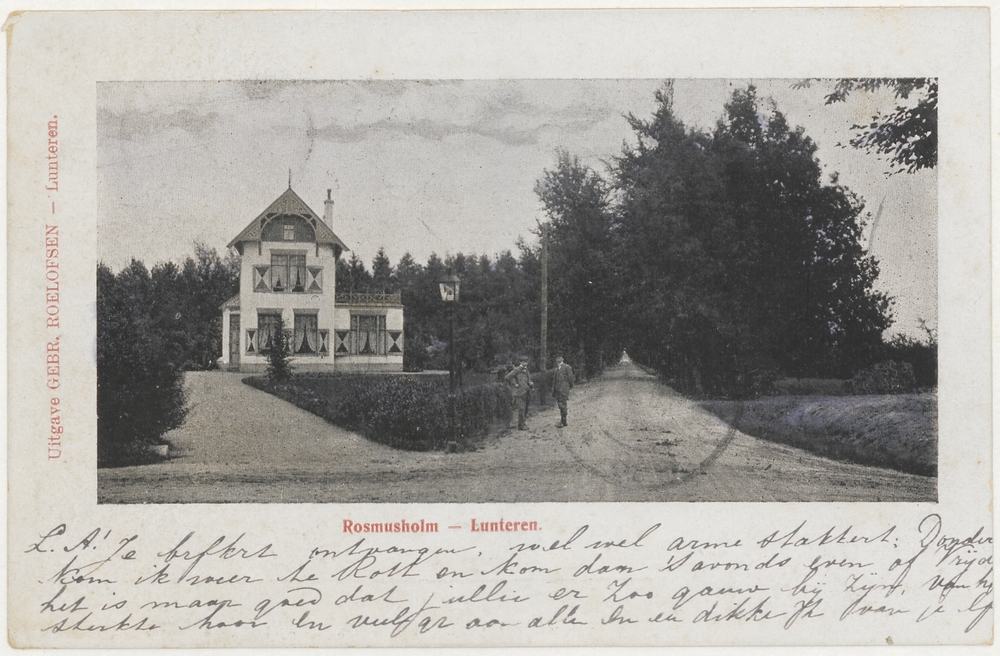 Uitgave GEBR. ROELOFSEN — Lunteren.
Rosmusholm — Lunteren.
L. A! Je brfkrt ontvangen, wel wel arme stakkert; Donder
kom ik weer te Rott en kom dan 's avonds even of Vrijd
het is maar goed dat jullie er zoo gauw bij zijn,
sterkte hoor en veel gr aan allen en een dikke van je